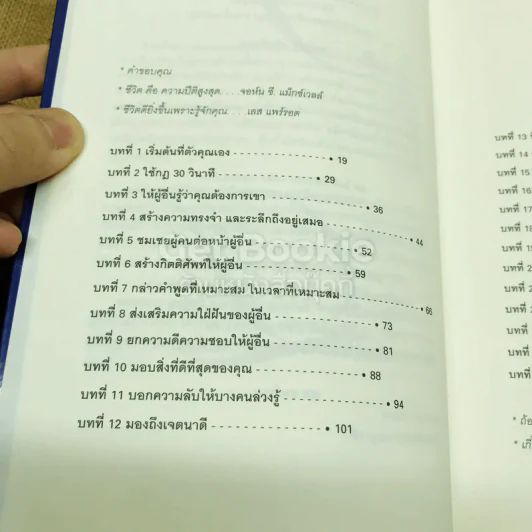 * คำขอบคุณ
* ชีวิต คือ ความปีติสูงสุด. . . .จอห์น ซี. แม็กซ์เวลล์
* ชีวิตดียิ่งขึ้นเพราะรู้จักคุณ. . . .เลส แพร์รอต
บทที่ 1 เริ่มต้นที่ตัวคุณเอง 19
บทที่ 2 ใช้กฎ 30 วินาที 29
บทที่ 3 ให้ผู้อื่นรู้ว่าคุณต้องการเขา 36
บทที่ 4 สร้างความทรงจำ และระลึกถึงอยู่เสมอ 44
บทที่ 5 ชมเชยผู้คนต่อหน้าผู้อื่น 52
บทที่ 6 สร้างกิตติศัพท์ให้ผู้อื่น 59
บทที่ 7 กล่าวคำพูดที่เหมาะสม ในเวลาที่เหมาะสม 66
บทที่ 8 ส่งเสริมความใฝ่ฝันของผู้อื่น 73
บทที่ 9 ยกความดีความชอบให้ผู้อื่น 81
บทที่ 10 มอบสิ่งที่ดีที่สุดของคุณ 88
บทที่ 11 บอกความลับให้บางคนล่วงรู้ 94
บทที่ 12 มองถึงเจตนาดี 101
บทที่ 13
บทที่ 14
บทที่ 15
บทที่ 16
บทที่ 17
บทที่ 18
บทที่
บทที่
บทที่
บทที่
บทที่
บทที่